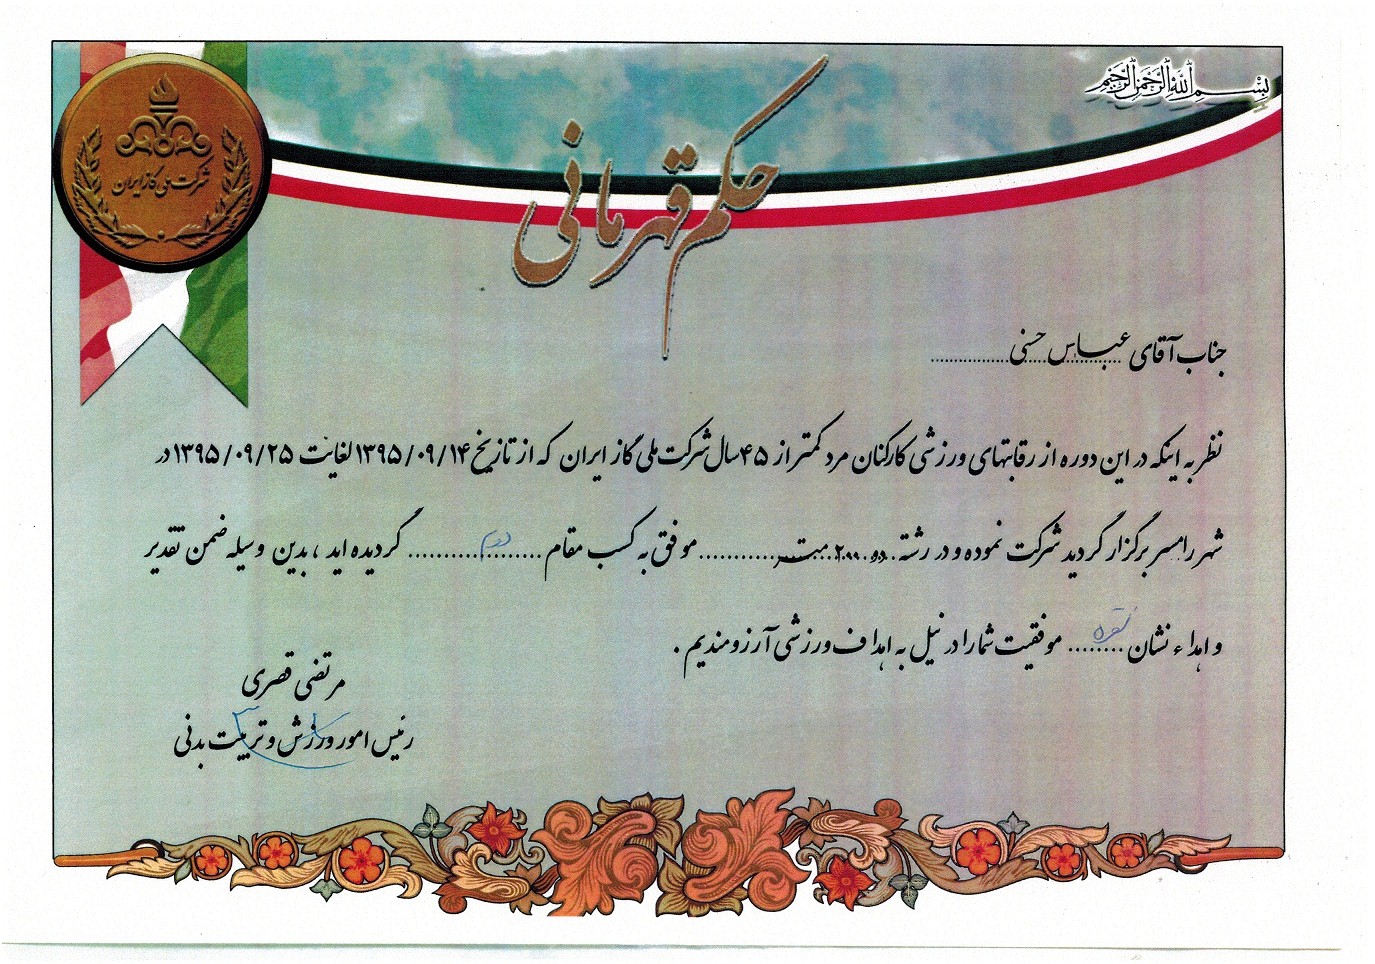 بسم الله الرحمن الرحیم
شرکت ملی گاز ایران
حکم قهرمانی
جناب آقای عباس حسنی
نظر به اینکه در این دوره از رقابتهای ورزشی کارکنان مرد کمتر از ۴۵ سال شرکت ملی گاز ایران که از تاریخ ۱۳۹۵/۰۹/۱۴ لغایت ۱۳۹۵/۰۹/۲۵ در
شهر رامسر برگزار گردید شرکت نموده و در رشته دو ۲۰۰۰ متر موفق به کسب مقام دوم گردیده اید ، بدین وسیله ضمن تقدیر
و اهداء نشان نقره موفقیت شما را در نیل به اهداف ورزشی آرزومندیم .
مرتضی قصری
رئیس امور ورزش و تربیت بدنی